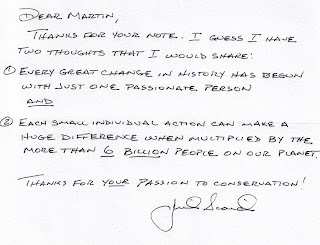 DEAR MARTIN,
THANKS FOR YOUR NOTE. I GUESS I HAVE
TWO THOUGHTS THAT I WOULD SHARE:
① EVERY GREAT CHANGE IN HISTORY HAS BEGUN
WITH JUST ONE PASSIONATE PERSON
AND
② EACH SMALL INDIVIDUAL ACTION CAN MAKE A
HUGE DIFFERENCE WHEN MULTIPLIED BY THE
MORE THAN 6 BILLION PEOPLE ON OUR PLANET.
THANKS FOR YOUR PASSION TO CONSERVATION!